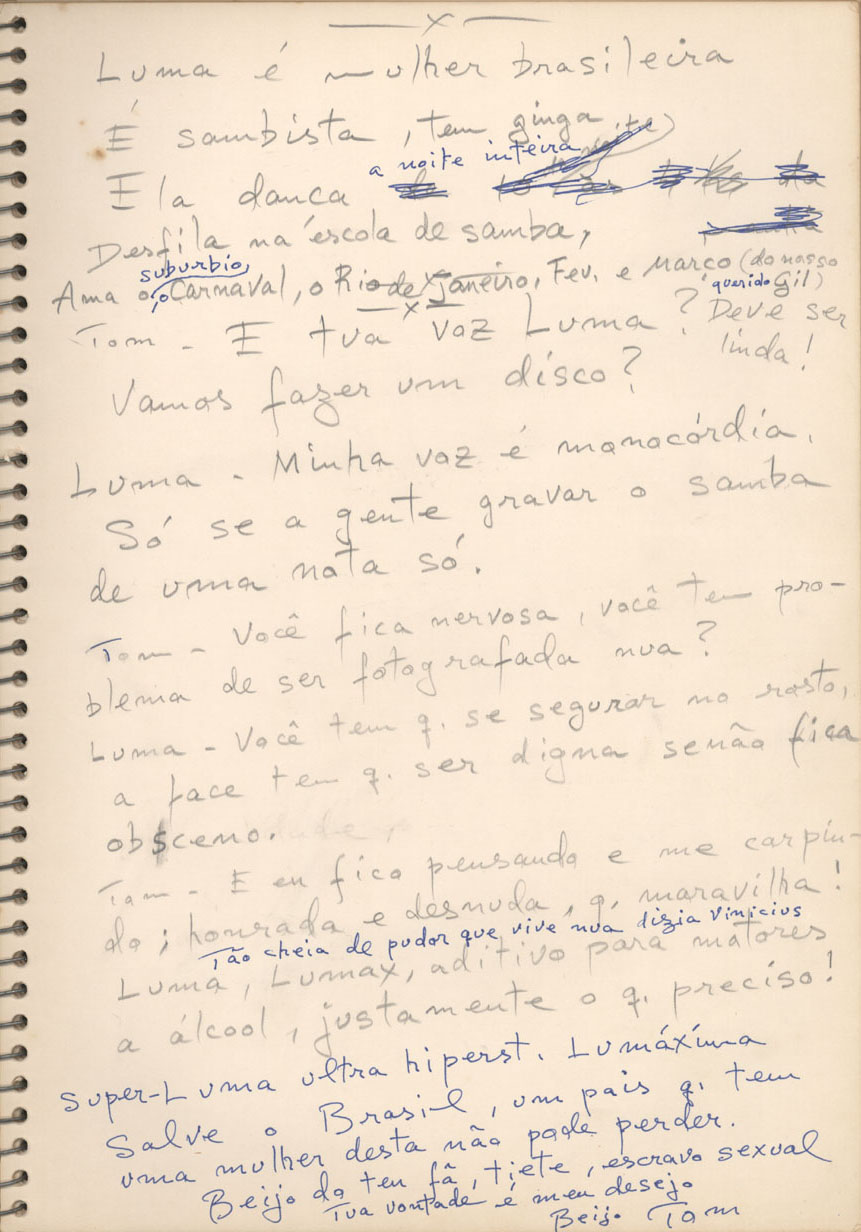 x
Luma é mulher brasileira
É sambista, tem ginga
a noite inteira
Ela dança
Desfila na escola de samba,
suburbio,
Ama o, o Carnaval, o Rio de Janeiro, Fev. e Março (do nosso
querido Gil)
x
Tom - E tua voz Luma? Deve ser
linda!
Vamos fazer um disco?
Luma - Minha voz é monocórdia.
Só se a gente gravar o samba
de uma nota só.
Tom - Você fica nervosa, você tem pro-
blema de ser fotografada nua?
Luma - Você tem q. se segurar no rosto,
a face tem q. ser digna senão fica
obsceno.
Tom - E eu fico pensando e me carpin-
do; honrada e desnuda, q. maravilha!
Tão cheia de pudor que vive nua dizia Vinicius
Luma, Lumax, aditivo para motores
a álcool, justamente o q. preciso!
Super-Luma ultra hiperst. Lumáxima
Salve o Brasil, um pais q. tem
uma mulher desta não pode perder.
Beijo do teu fã, tiete, escravo sexual
Tua vontade é meu desejo
Beijo Tom